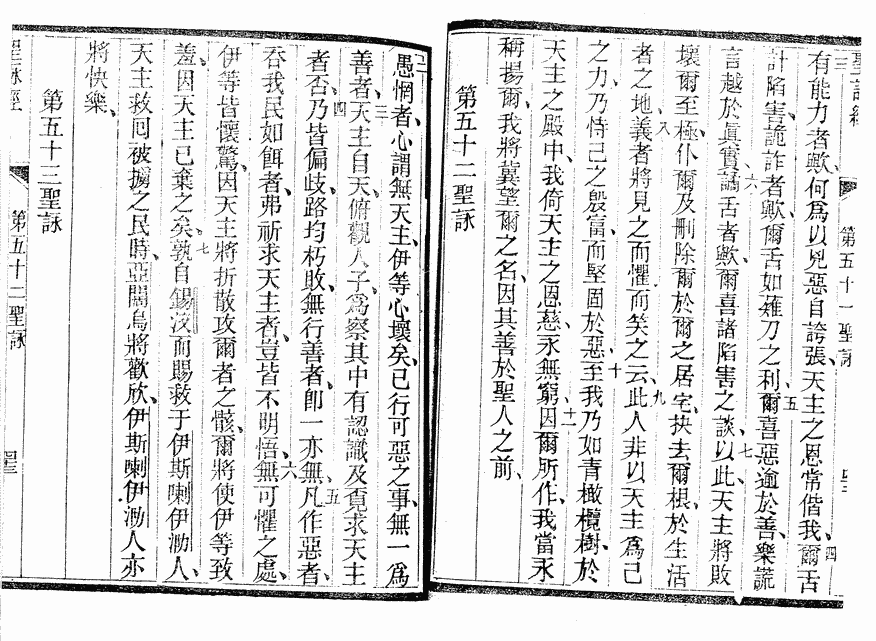 聖詠經
第五十一聖詠
三
有能力者歟、何爲以兇惡自誇張、天主之恩常偕我、四爾舌
計陷害詭詐者歟、爾舌如薙刀之利、五爾喜惡逾於善、樂謊
言越於眞實、六譎舌者歟、爾喜諸陷害之談、七以此天主將敗
壞爾至極、仆爾及刪除爾於爾之居宅、抉去爾根、於生活
者之地、八義者將見之而懼、而笑之云、九此人非以天主爲己
之力、乃恃己之殷富、而堅固於惡、十至我乃如青橄欖樹、於
天主之殿中、我倚天主之恩慈、永無窮、十一因爾所作、我當永
稱揚爾、我將冀望爾之名、因其善於聖人之前、
第五十二聖詠
二
愚惘者、心謂無天主、伊等心壞矣、已行可惡之事、無一爲
善者、三天主自天、俯觀人子、爲察其中有認識及覔求天主
者否、四乃皆偏歧路、均朽敗、無行善者、卽一亦無、五凡作惡者、
吞我民如餌者、弗祈求天主者、豈皆不明悟、無可懼之處、
六伊等皆懷驚、因天主將折散攻爾者之骸、爾將使伊等致
羞、因天主已棄之矣、七孰自錫汶而賜救于伊斯喇伊泐人、
天主救囘被擄之民時、亞闊烏將歡欣、伊斯喇伊泐人亦
將快樂、
第五十三聖詠
聖詠經
第五十二聖詠